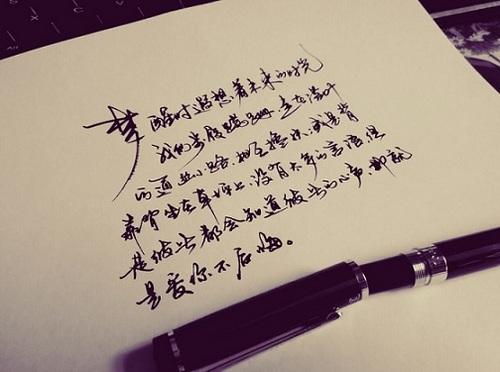 梦醒时遐想着未来的时光
我的步履蹒跚,走在落叶
的通幽小路,相互搀扶,或是背
靠背坐在草坪上,没有太多的言语但
是彼此都会知道彼此的心声,那就
是爱你不后悔。